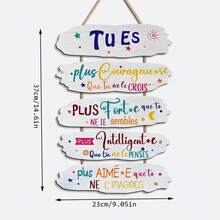 TU ES
plus Courageux·se
Que tu ne le CROIS
PLUS Fort·e que tu
NE LE SEMBLES
PLUS Intelligent·e
Que tu ne le PENSES
plus AIMÉ·E que tu
NE L'IMAGINES
37cm/14.61in
23cm/9.05in